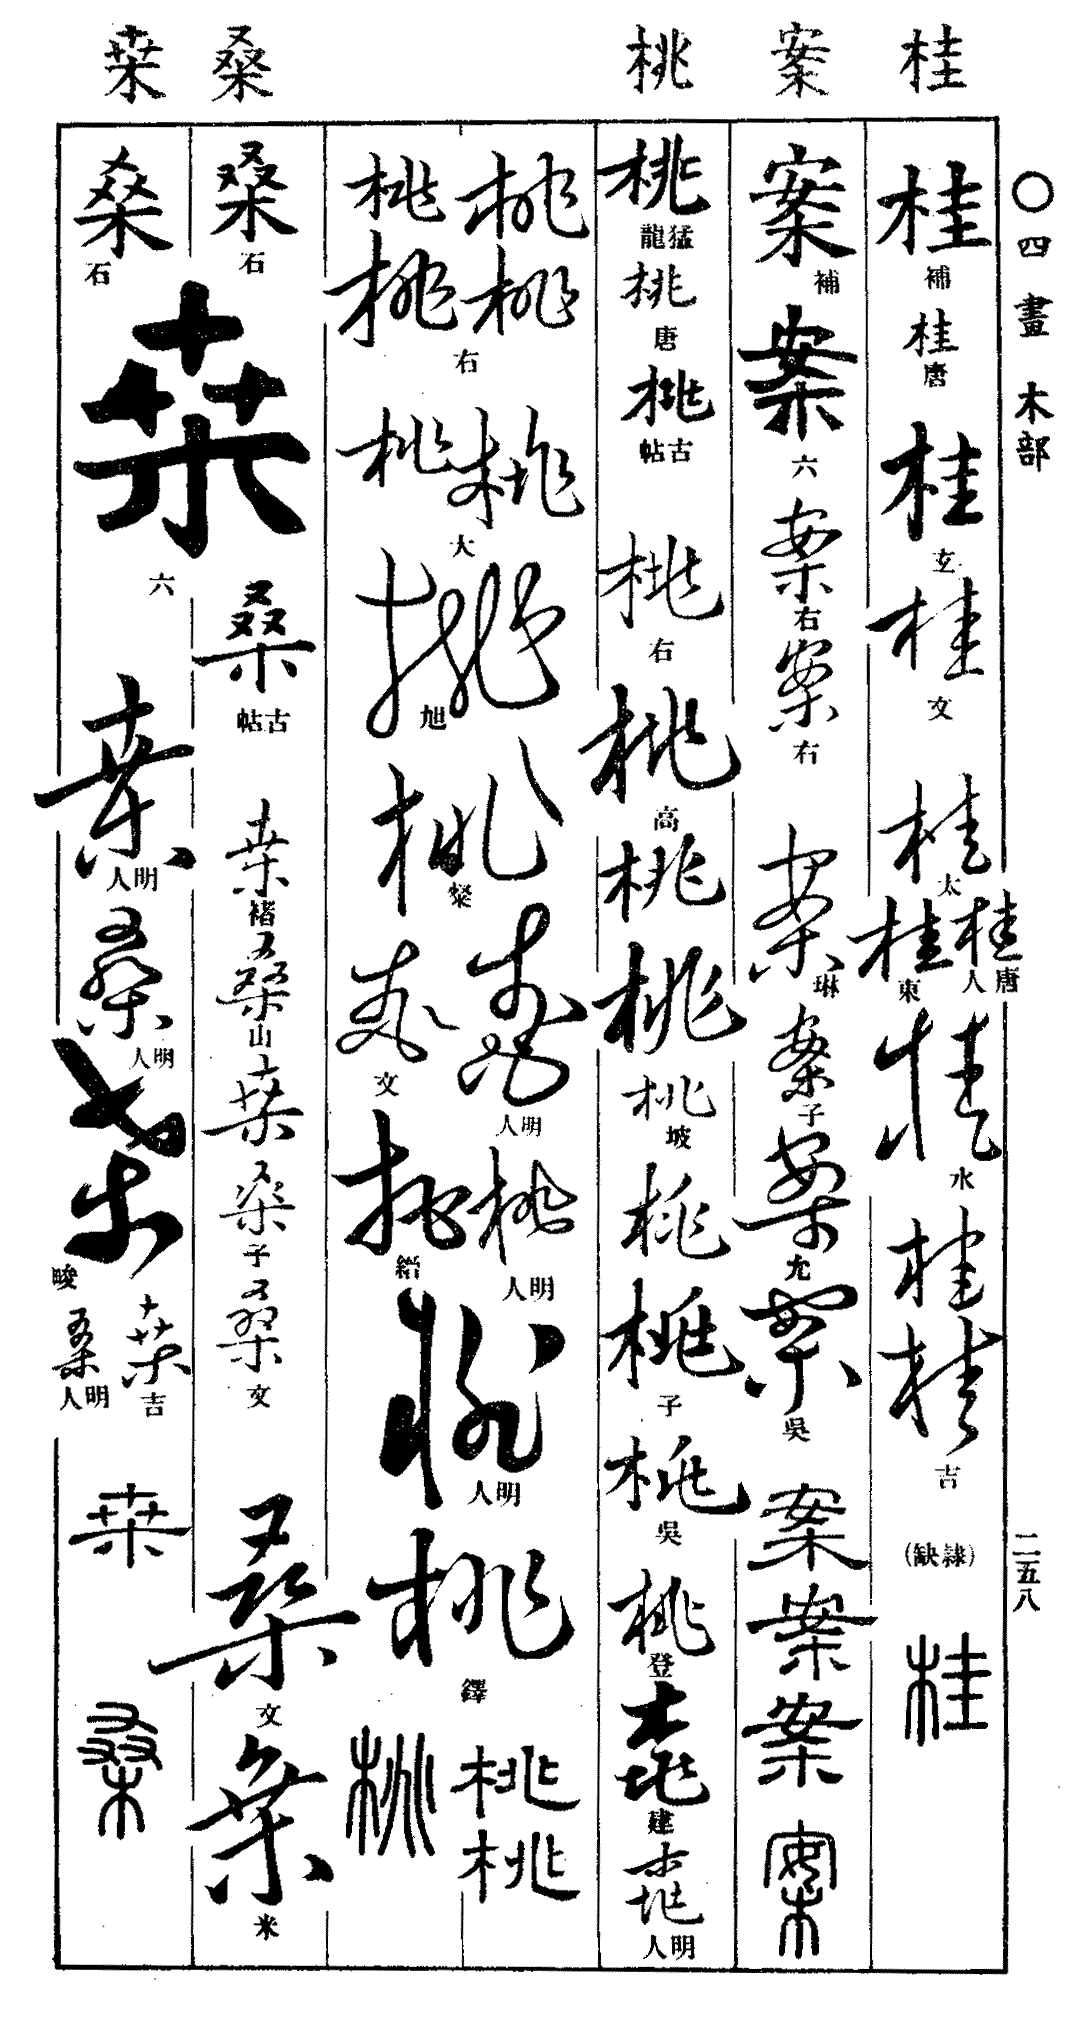 〇四畫 木部
二五八
桂
桂 補
桂 唐
桂 玄
桂 文
桂 太
桂 唐人
桂 東
桂 水
桂
桂 吉
(隷缺)
桂
案
案 補
案 六
案 右
案 右
案 琳
案 子
案 尤
案 吳
案
案
案
案
桃
桃 猛龍
桃 唐
桃 古帖
桃 右
桃 高
桃
桃
桃 坡
桃
桃 子
桃 吳
桃 登
桃 建
桃 明人
桃
桃
桃
桃 右
桃
桃 大
桃 旭
桃 粲
桃 明人
桃 文
桃 明人
桃
桃 明人
桃 鐸
桃
桃
桃
桑
桑 石
桑 古帖
桒 褚
桑 山
桒
桑 子
桑 文
桑 文
桒 米
桒
桑 石
桒 六
桒 明人
桑 明人
桑 畯
桒 吉
桑 明人
桒
桑